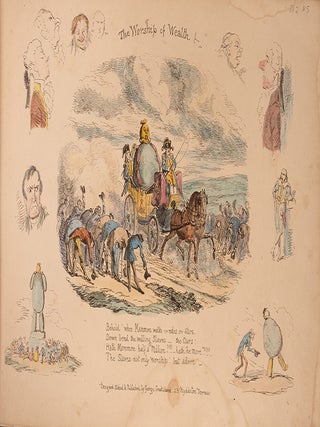 The Worship of Wealth
Behold when Mammon walks or rides in State
Down bend the willing Slaves the Cure!
Hath Mammon half a Million!!! hath he more???
The Slaves not only worship but adore
Designed Etched & Published by George Cruikshank 23 Myddelton Terrace